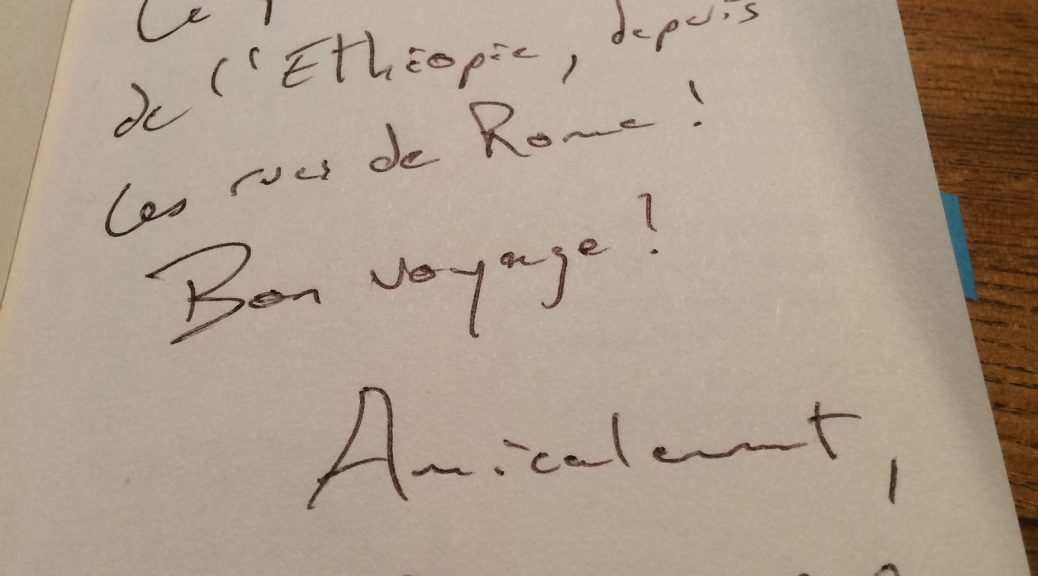 Ce
de l'Ethiopie, depuis
les rues de Rome !
Bon voyage !
Amicalement,